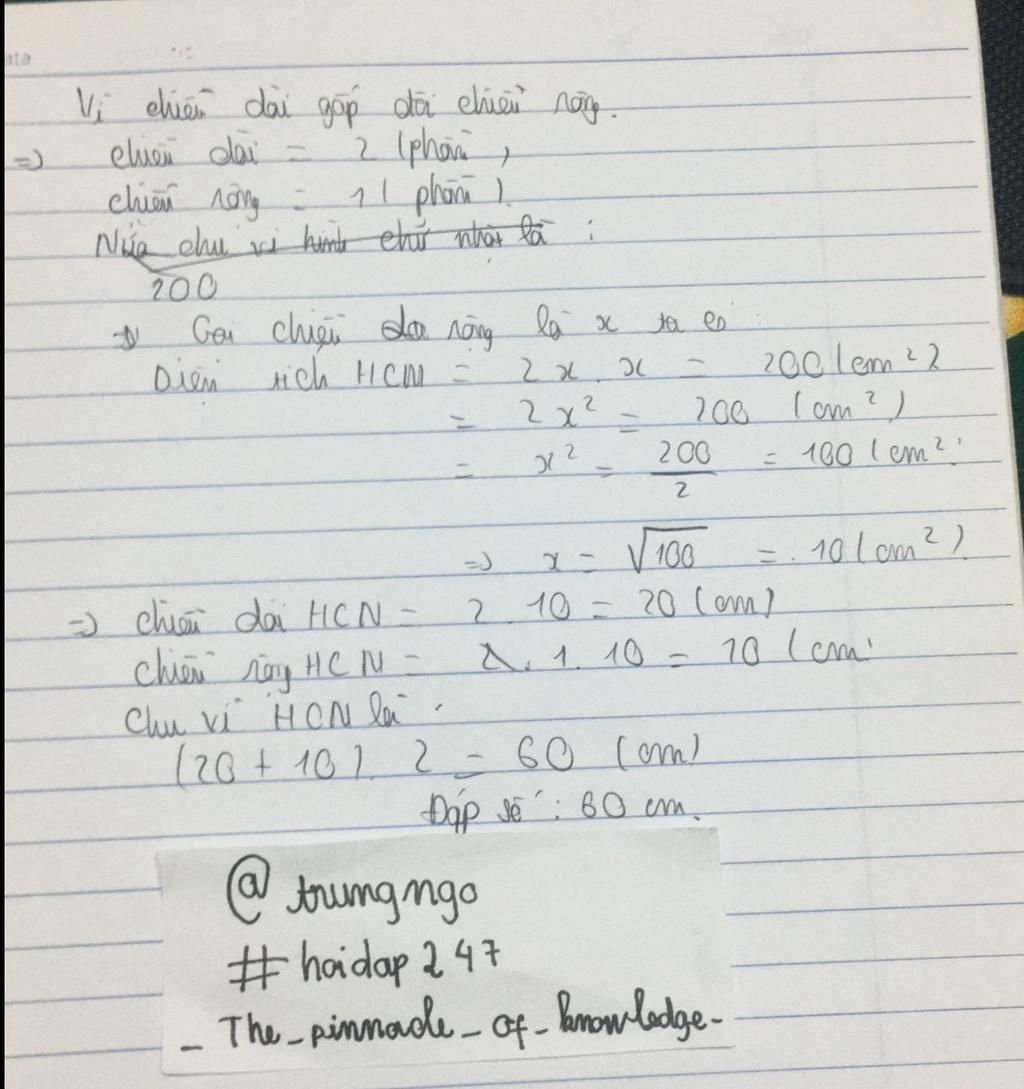 Vì chiều dài gấp đôi chiều rộng.
=> chiều dài = 2 (phần,
chiều rộng = 1 ( phần ).
Nửa chu vi hình chữ nhật là :
200
=> Gọi chiều rộng là x ta có :
Diện tích HCN = 2x . x = 200 (cm²)
= 2x² = 200 (cm²)
= x² = 200/2 = 100 (cm².
=> x = √100 = 10 (cm²).
=> chiều dài HCN = 2 . 10 = 20 (cm)
chiều rộng HCN = 1 . 10 = 10 (cm
Chu vi HCN là :
(20 + 10) . 2 = 60 (cm)
Đáp số : 60 cm.
@trungngo
#hoidap247
_The_pinnacle_of_knowledge_